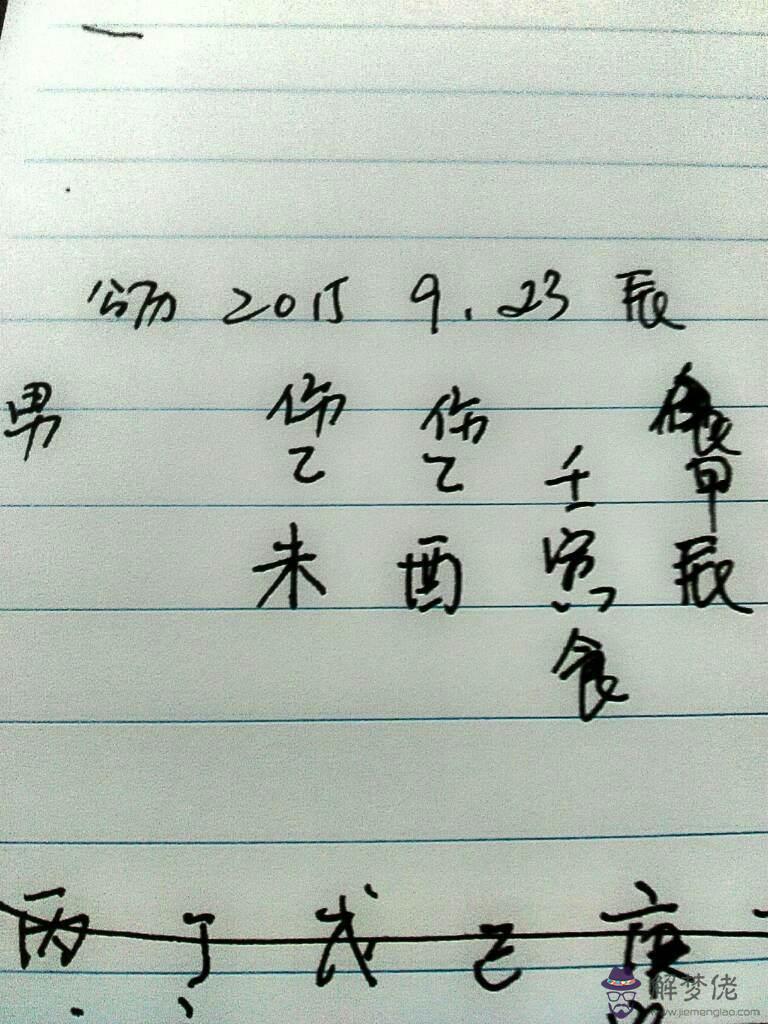 公历 2015 9.23 辰
男 伤 伤 食
乙 乙 壬 甲
未 酉 寅 辰
食
丙 丁 戊 己 庚
解梦佬
www.jiemenglao.com